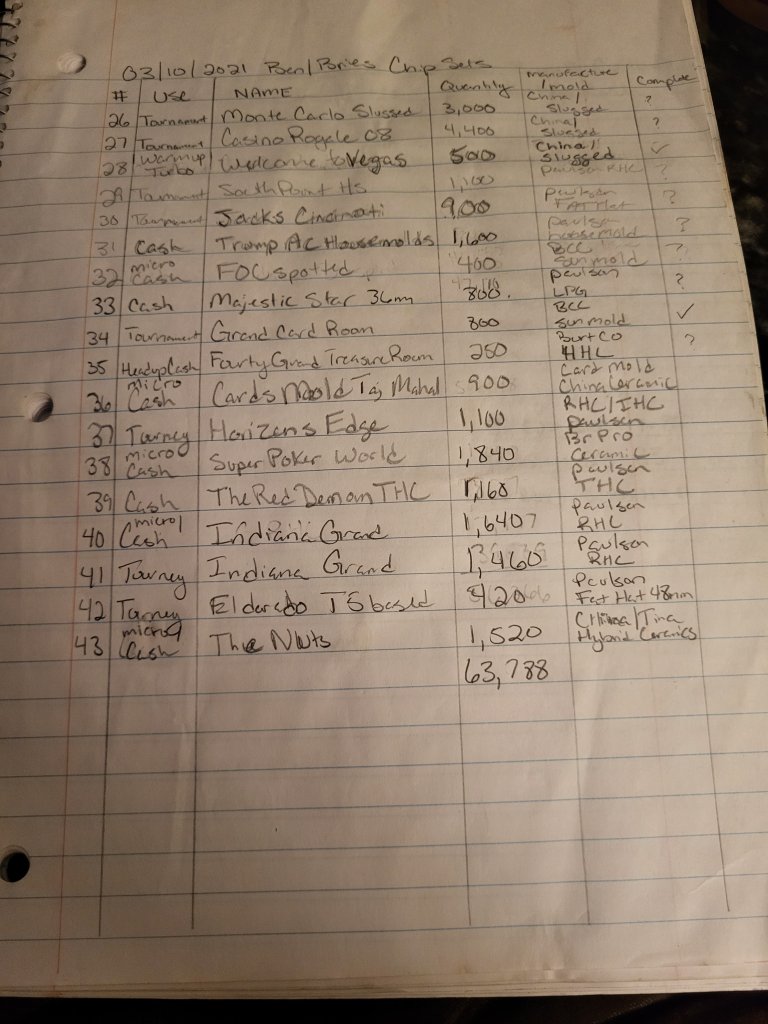 03/10/2021 Ben/Bories Chip Sets
# Use NAME Quantity manufacture/mold Complete
26 Tournament Monte Carlo Slugged 3,000 China/Slugged ?
27 Tournament Casino Royale 08 4,400 China/Slugged ?
28 Warmup Turbo Welcome to Vegas 500 China/Slugged ✓
29 Tournament SouthPoint Hs 1,100 paulson RHC ?
30 Tournament Jacks Cincinati 900 paulson FAT Hat ?
31 Cash Trump AC Housemolds 1,600 paulson housemold ?
32 micro Cash FOC spotted 400 BCC sunmold ?
33 Cash Majestic Star 36m 800. paulson LPG ?
34 Tournament Grand Card Room 800 BCC sunmold ✓
35 Headup Cash Fourty Grand Treasure Room 250 Burt Co HHL ?
36 micro Cash Cards Mold Taj Mahal 900 Card Mold China Ceramic
37 Tourney Horizens Edge 1,100 RHC/IHC paulson
38 micro Cash Super Poker World 1,840 Br Pro Ceramic
39 Cash The Red Demon THC 1,160 paulson THC
40 micro/Cash Indiana Grand 1,640 Paulson RHC
41 Tourney Indiana Grand 1,460 Paulson RHC
42 Torney Eldorado T5 based 920 Paulson Fat Hat 48mm
43 micro Cash The Nuts 1,520 China/Tina Hybrid Ceramics
63,788